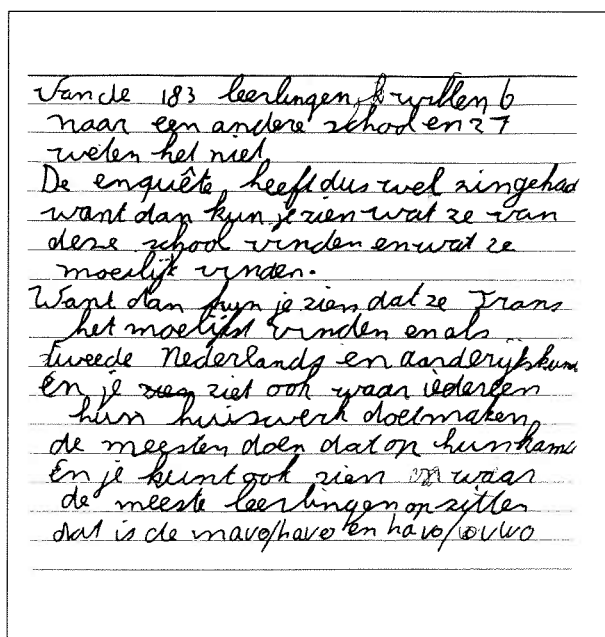 Van de 183 leerlingen willen 6
naar een andere school en 27
weten het niet
De enquête heeft dus wel zin gehad
want dan kun je zien wat ze van
deze school vinden en wat ze
moeilijk vinden.
Want dan kun je zien dat ze Frans
het moeilijst vinden en als
tweede Nederlands en aarderijkskun
En je ziet ook waar iedereen
hun huiswerk doet maken
de meesten doen dat op hun kame
En je kunt ook zien waar
de meeste leerlingen op zitten
dat is de mavo/havo en havo/vwo